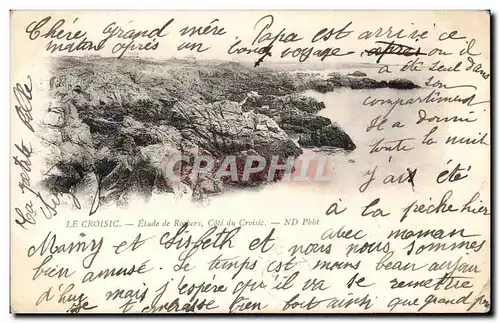 Chère grand mère Papa est arrivé ce
matin après un bon voyage après ou il
a été seul dans
son
compartiment
Il a dormi
toute la nuit
J'ai été
à la pêche hier
avec maman
Mainy et et nous nous sommes
bien amusé. Le temps est moins beau aujour
d'huy mais j'espère qu'il va se remettre
Je t'embrasse bien fort ainsi que grand père
Ta petite fille
LE CROISIC. — Étude de Rochers, Côté du Croisic. — ND Phot
CPHARTI.COM